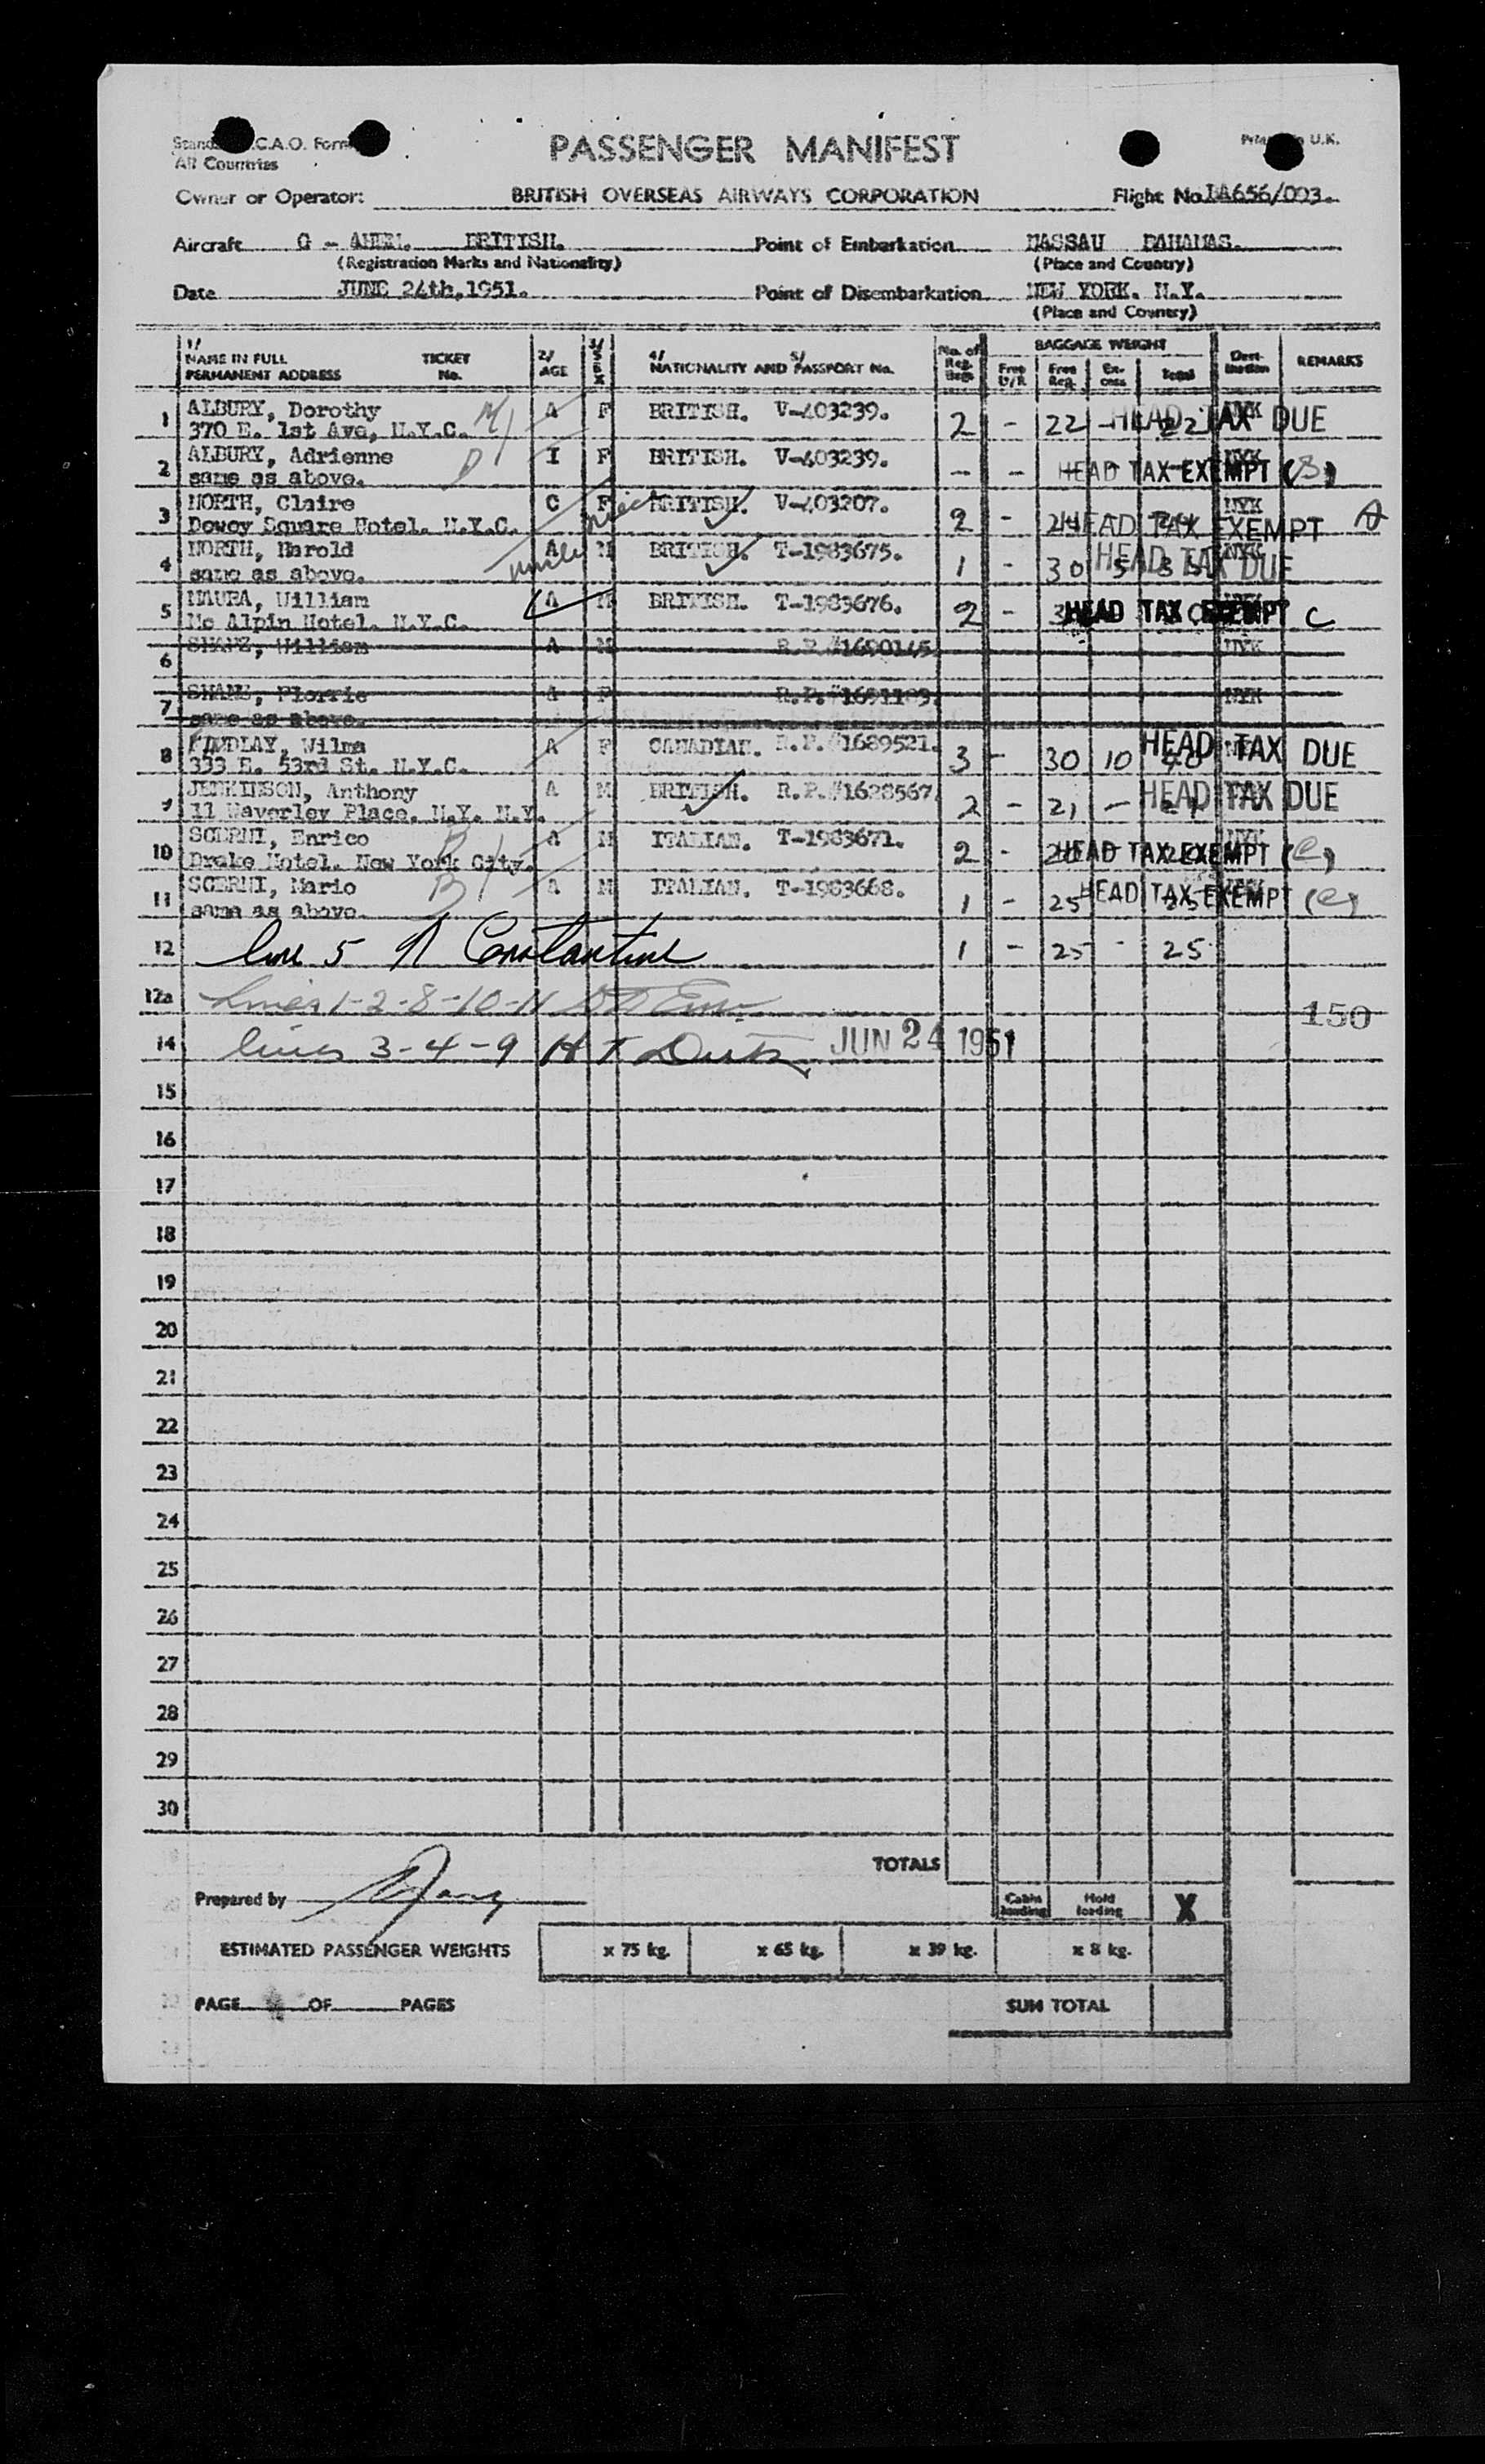 All Countries
PASSENGER MANIFEST
U.K.
Owner or Operator: BRITISH OVERSEAS AIRWAYS CORPORATION Flight No. /003.
Aircraft G - BRITISH. Point of Embarkation NASSAU BAHAMAS.
(Registration Marks and Nationality) (Place and Country)
Date JUNE 24th, 1951. Point of Disembarkation NEW YORK. N.Y.
(Place and Country)
1/ NAME IN FULL PERMANENT ADDRESS TICKET No. 2/ AGE 3/ SEX 4/ NATIONALITY AND 5/ PASSPORT No. No. of Reg. Bags BAGGAGE WEIGHT Free U/R Free Reg. Ex-cess Total Dest-ination REMARKS
1 ALBURY, Dorothy A F BRITISH. V-403239. 2 - 22 - 22 NYK HEAD TAX DUE
370 E. 1st Ave, N.Y.C.
2 ALBURY, Adrienne I F BRITISH. V-403239. - - NYK HEAD TAX EXEMPT (B)
same as above.
3 NORTH, Claire C F niece BRITISH. V-403207. 2 - 24 - 24 NYK HEAD TAX EXEMPT A
Dewey Square Hotel. N.Y.C.
4 NORTH, Harold uncle A M BRITISH. T-1983675. 1 - 30 5 35 NYK HEAD TAX DUE
same as above.
5 MAURA, William A M BRITISH. T-1983676. 2 - HEAD TAX EXEMPT C
Mc Alpin Hotel. N.Y.C.
6 William A M R.P.#1690145. NYK
7 Florrie A F R.P.#1691189. NYK
same as above.
8 FINDLAY, Wilma A F CANADIAN. R.P.#1689521. 3 - 30 10 40 HEAD TAX DUE
333 E. 53rd St. N.Y.C.
9 JENKINSON, Anthony A M BRITISH. R.P.#1628567. 2 - 21 - 21 HEAD TAX DUE
11 Waverley Place. N.Y. N.Y.
10 SCERNI, Enrico A M ITALIAN. T-1983671. 2 - 20 NYK HEAD TAX EXEMPT (C)
Drake Hotel. New York City.
11 SCERNI, Mario A M ITALIAN. T-1983668. 1 - 25 25 HEAD TAX EXEMPT (C)
same as above.
12 line 5 N Constantine 1 - 25 - 25
12a Lines 1-2-8-10-11 150
14 lines 3-4-9 H T JUN 24 1951
15
16
17
18
19
20
21
22
23
24
25
26
27
28
29
30
TOTALS
Prepared by Cabin loading Hold loading X
ESTIMATED PASSENGER WEIGHTS x 75 kg. x 65 kg. x 39 kg. x 8 kg.
PAGE OF PAGES SUM TOTAL